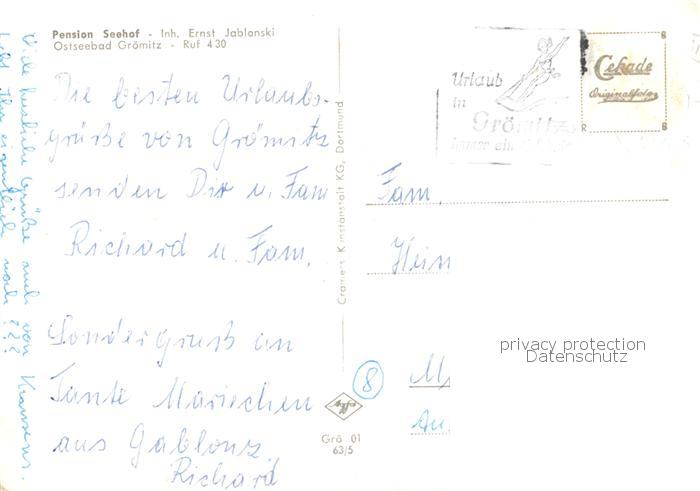 Pension Seehof - Inh. Ernst Jablonski
Ostseebad Grömitz - Ruf 430
Die besten Urlaubs-
grüße von Grömitz
senden Dir u. Fam
Richard u. Fam.
Sondergruß an
Tante Mariechen
aus Gablonz
Richard
Viele herzliche Grüße auch von Krausens.
Lebt Ihr eigentlich noch ???
Cramers Kunstanstalt KG, Dortmund
Urlaub
in
Grömitz
immer ein
Cekade
Originalfoto
R
B
Fam.
Hein
8
Agfa
Grö 01
63/5
privacy protection
Datenschutz